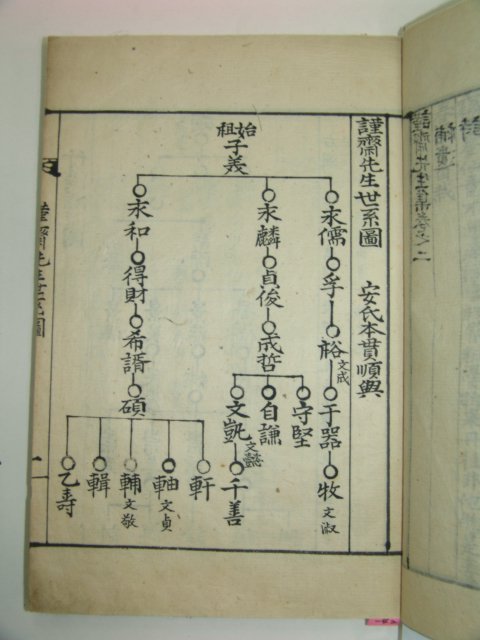 謹齋先生世系圖　安氏本貫順興
始祖
子義
永儒
孚
裕 文成
于器
牧 文淑
永麟
貞俊
成哲
守堅
自謙
文凱 文懿
千善
永和
得財
希諝
碩
軒
軸 文貞
輔 文敬
輯
乙壽
謹齋先生世系圖
二
謹齋先生集卷之二
補遺